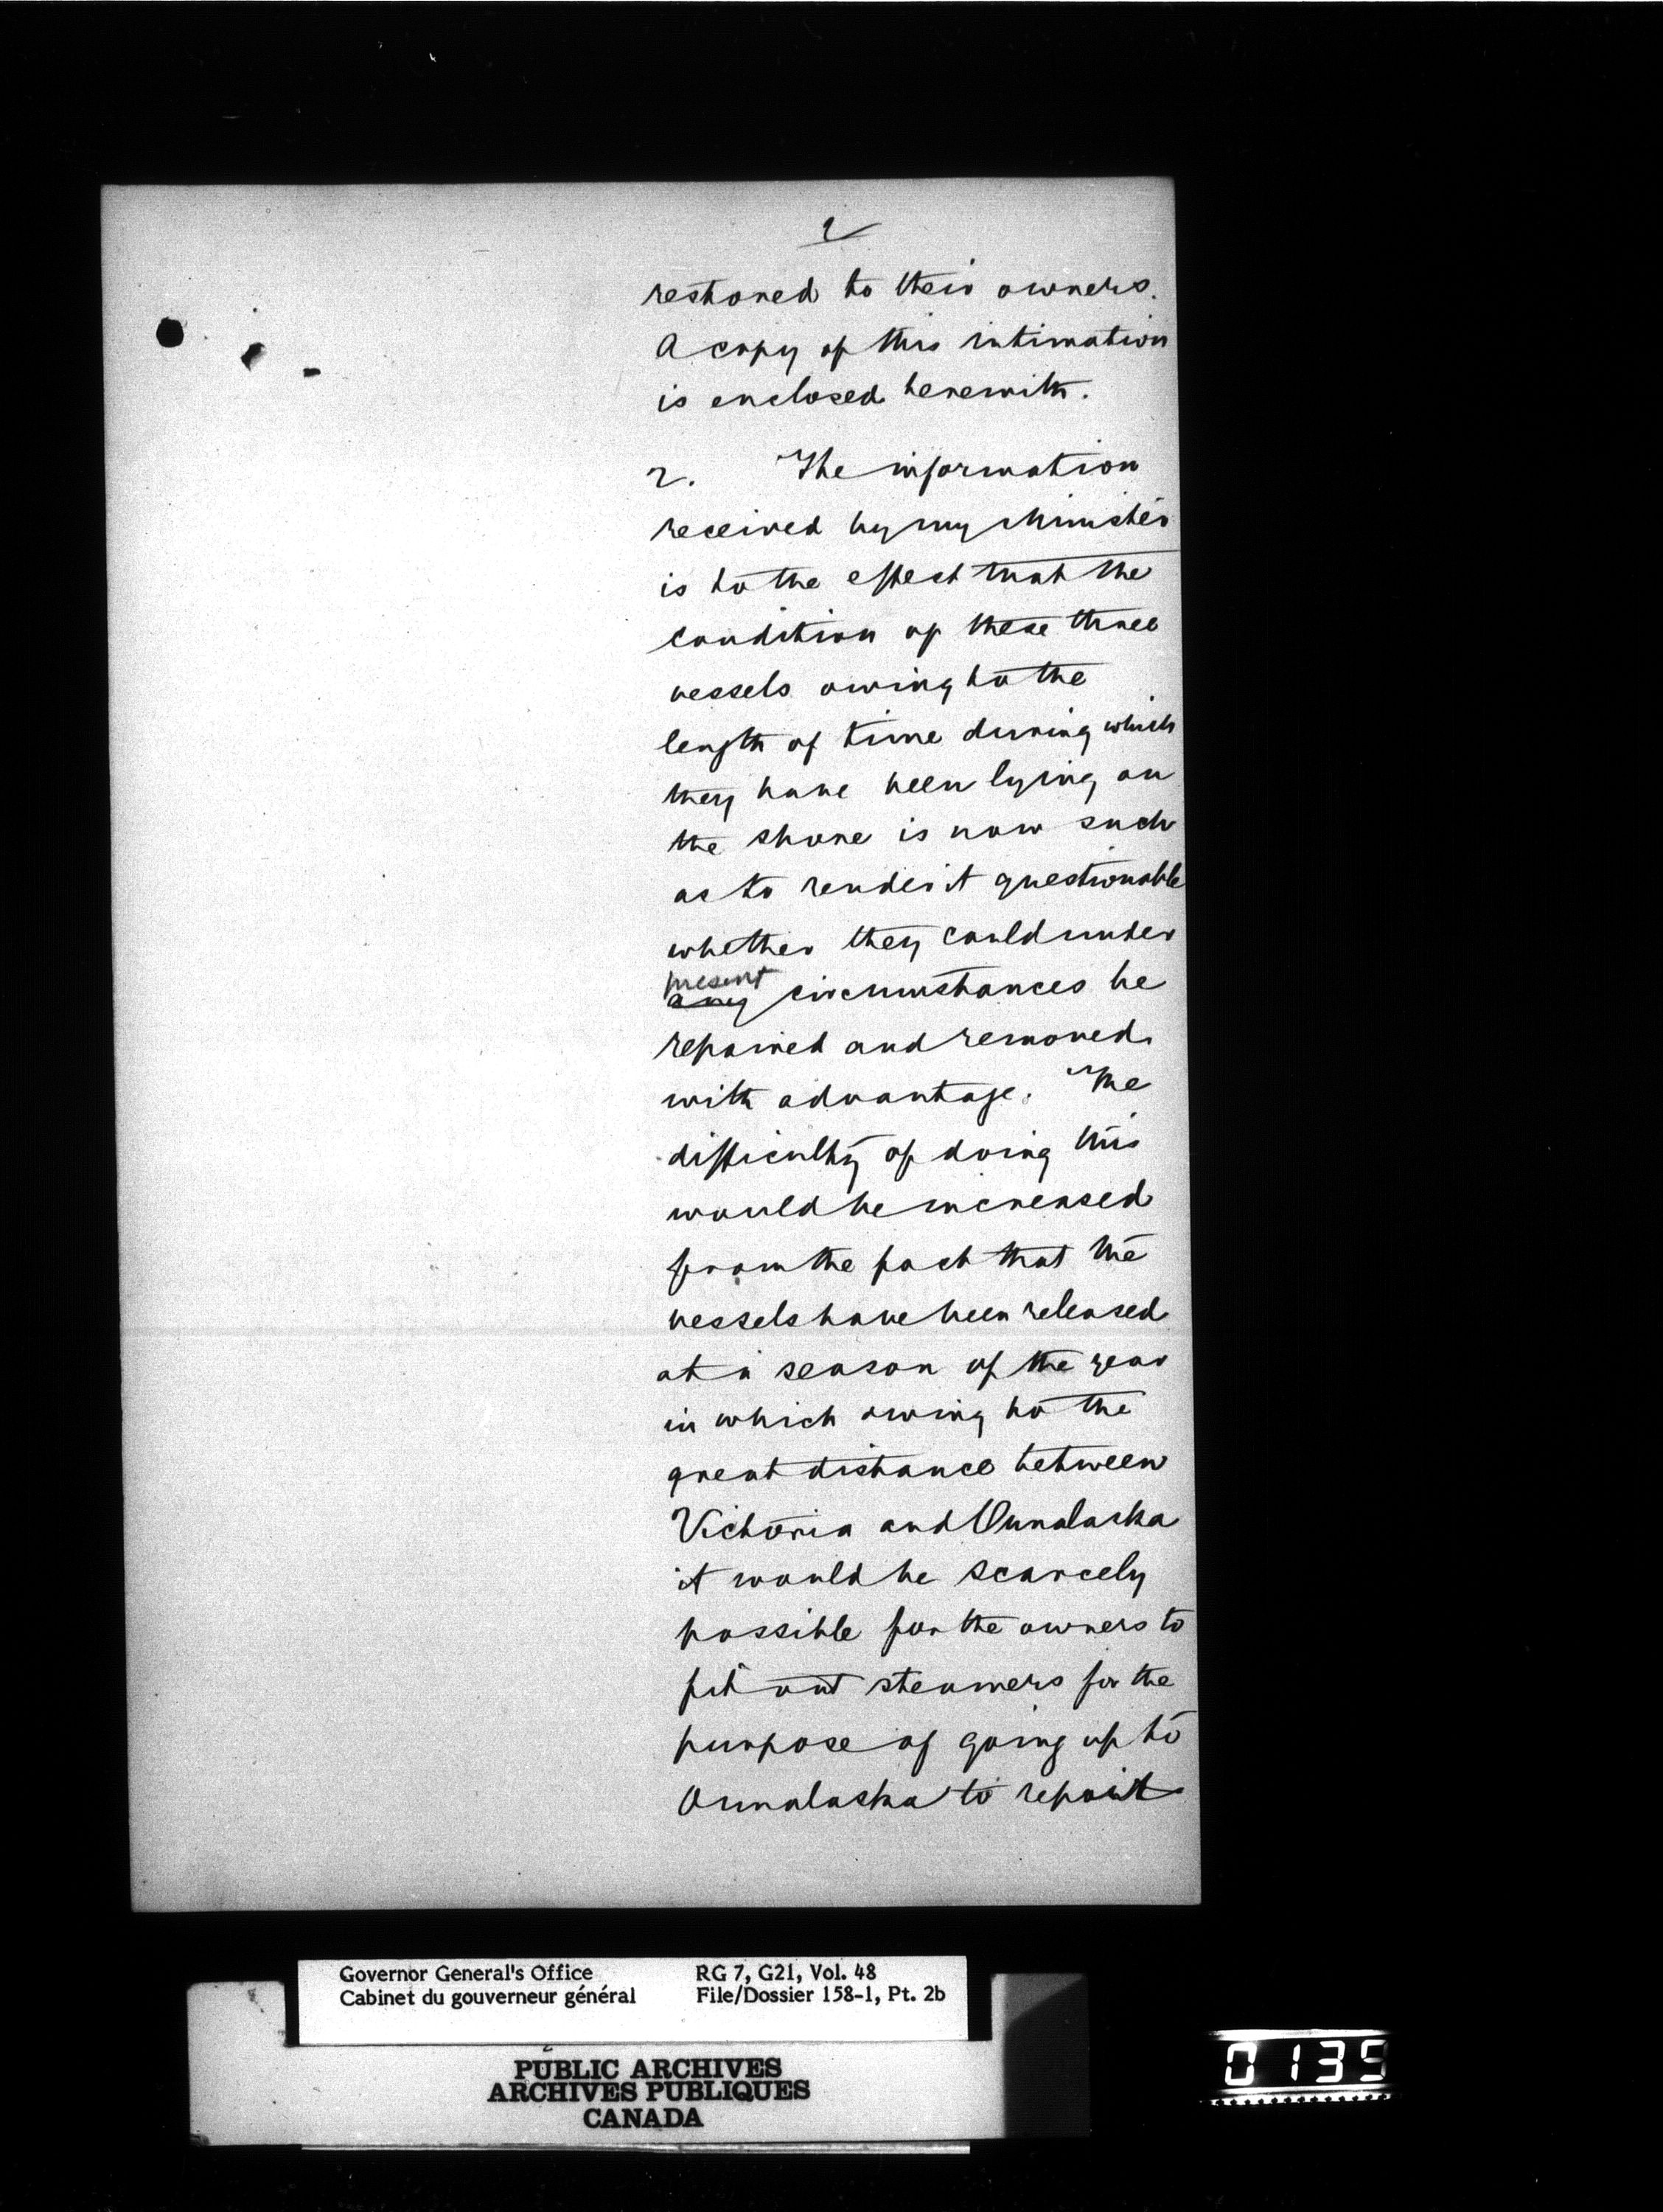 2
restored to their owners.
A copy of this intimation
is enclosed herewith.
2. The information
received by my Minister
is to the effect that the
condition of these three
vessels owing to the
length of time during which
they have been lying on
the shore is now such
as to render it questionable
whether they could under
present
any circumstances be
repaired and removed
with advantage. The
difficulty of doing this
would be increased
from the fact that the
vessels have been released
at a season of the year
in which owing to the
great distance between
Victoria and Ounalaska
it would be scarcely
possible for the owners to
fit out steamers for the
purpose of going up to
Ounalaska to repair
Governor General's Office RG 7, G21, Vol. 48
Cabinet du gouverneur général File/Dossier 158-1, Pt. 2b
PUBLIC ARCHIVES
ARCHIVES PUBLIQUES
CANADA
0135